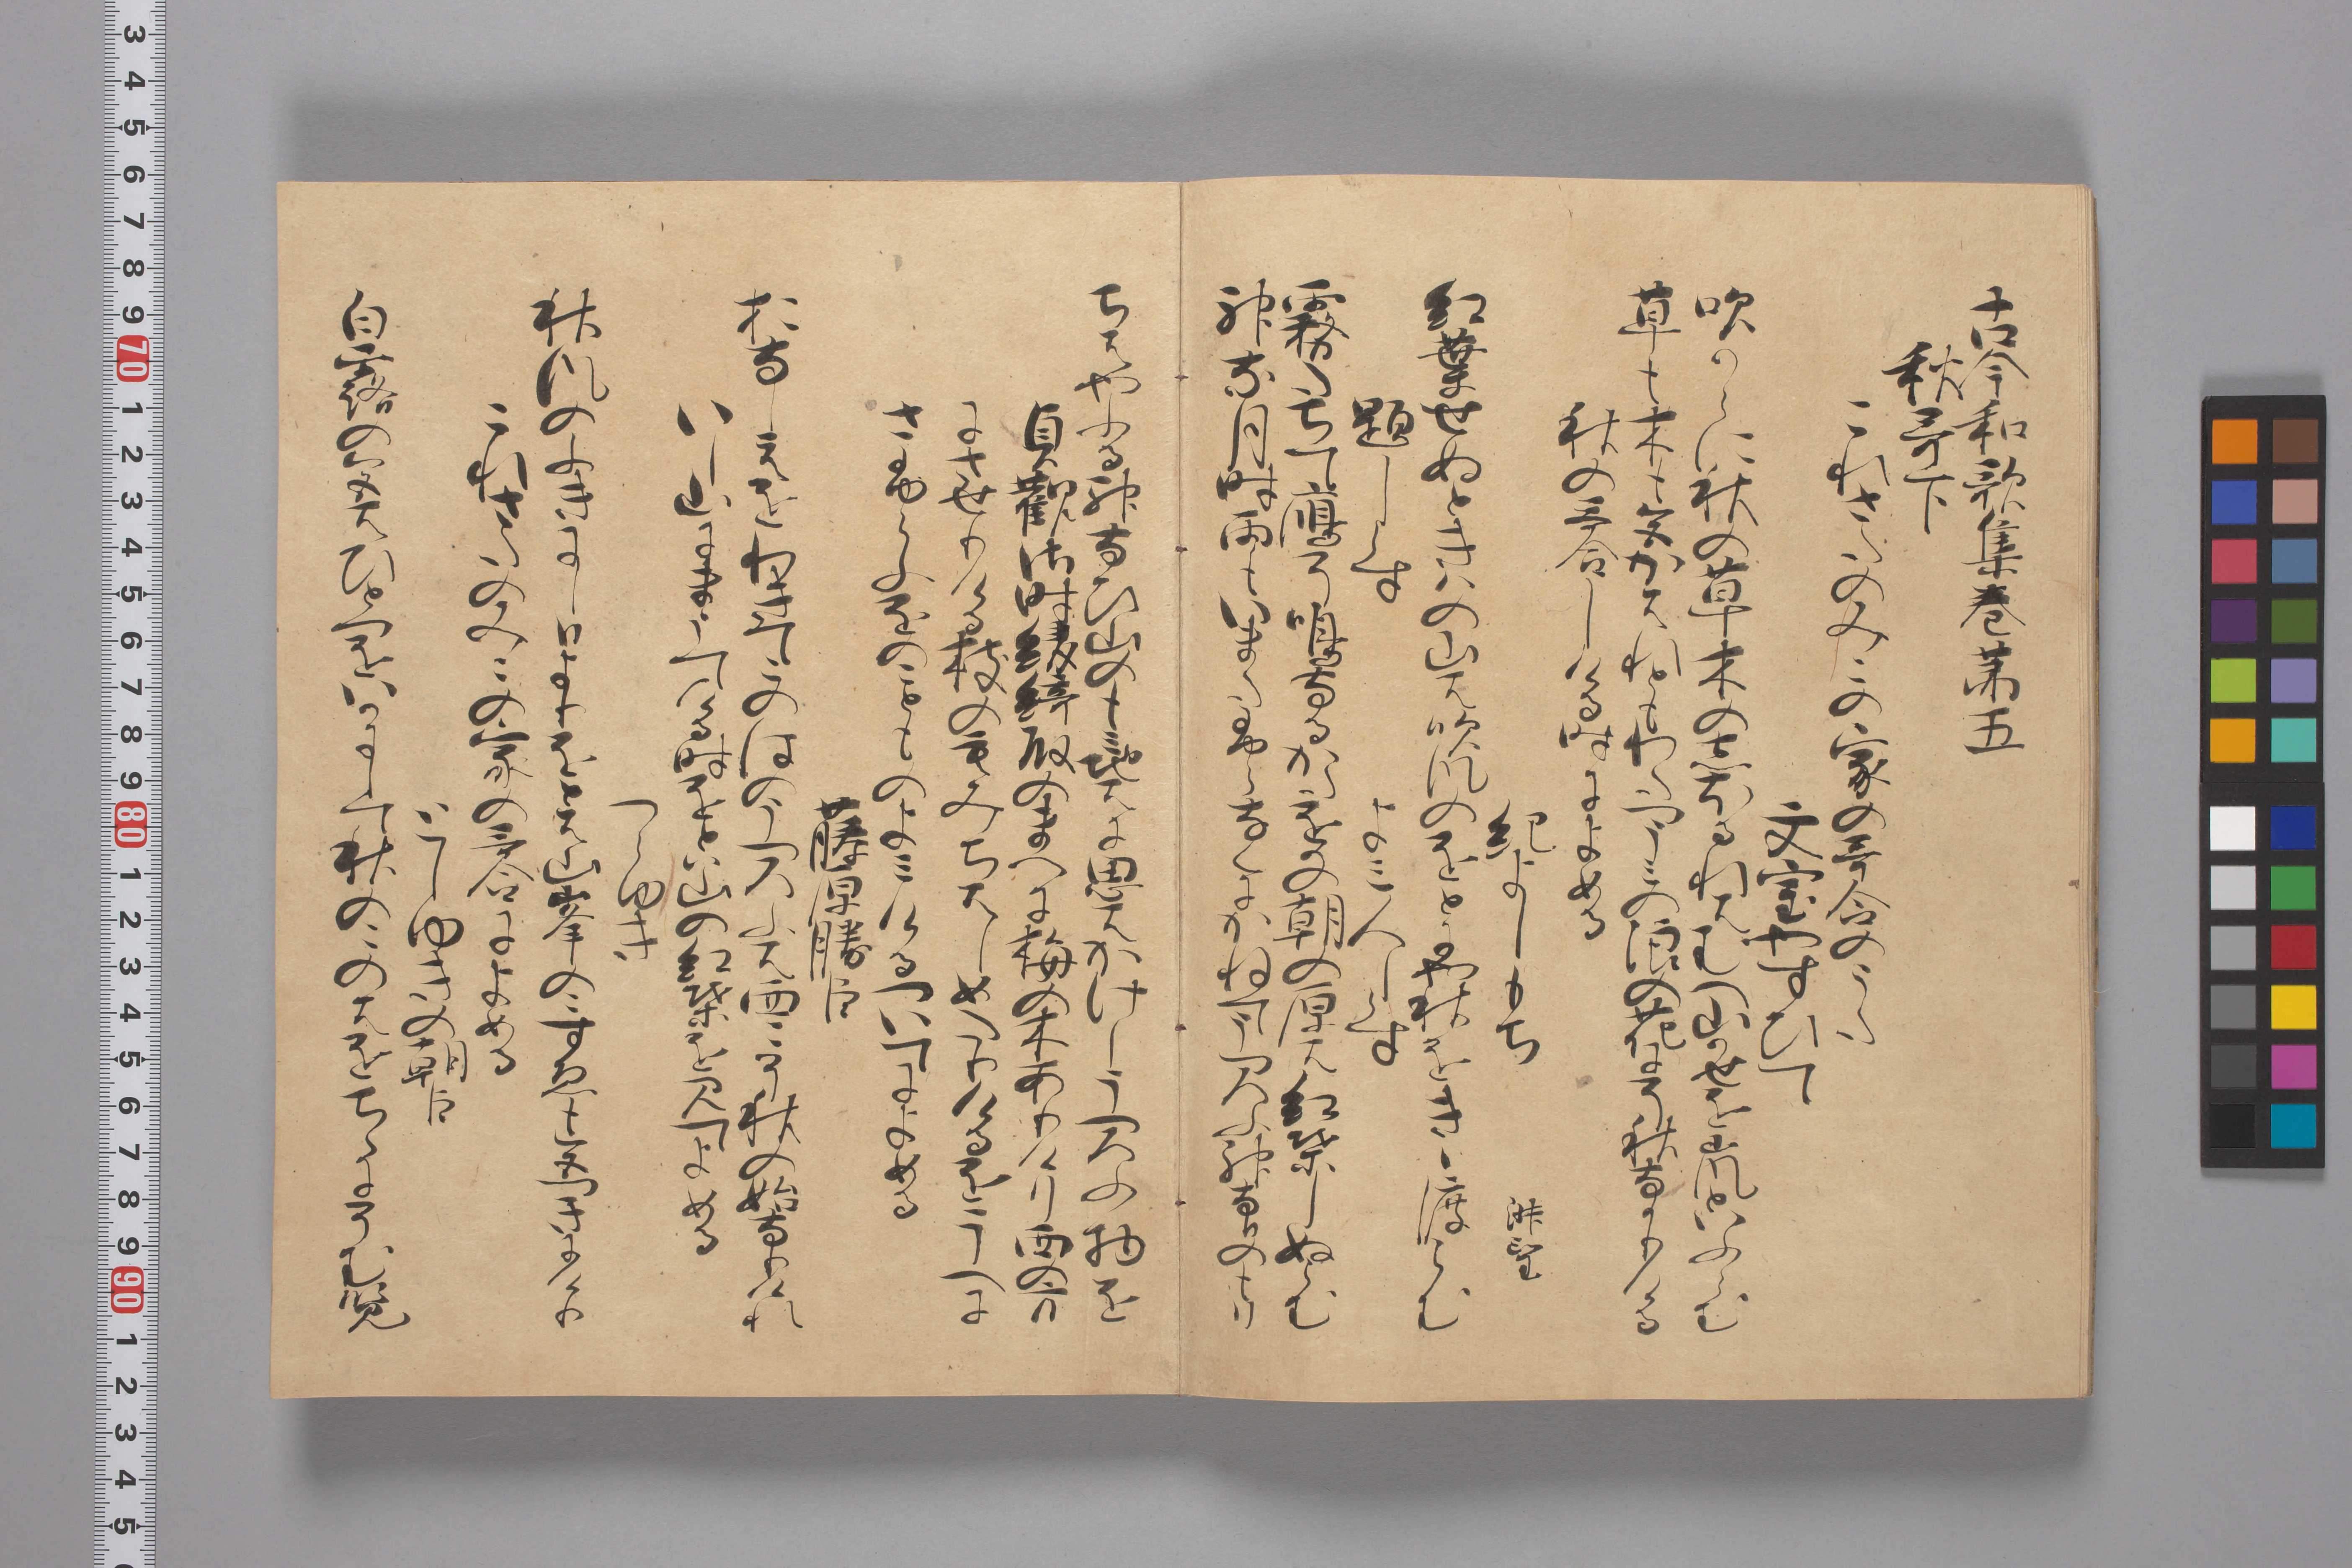 古今和歌集巻第五
秋哥下
これさたのみこの家の哥合のうた
文室やすひて
吹からに秋の草木のしほるれはむへ山かせを嵐といふらむ
草も木も色かはれともわたつうみの浪の花にそ秋なかりける
秋の哥合しける時によめる
紀よしもち
紅葉せぬときはの山は吹風のをとにや秋をきゝ渡らむ
題しらす
よみ人しらす
霧立て鴈そ鳴なるかた岡の朝の原は紅葉しぬらむ
神な月時雨もいまたふらなくにかねてうつろふ神なひのもり
ちはやふる神なひ山のもみちはに思ひはかけしうつろふ物を
貞観御時綾綺殿のまへに梅の木ありけり西の方
にさせりける枝のもみちはしめたりけるをうへに
さふらふをのことものよみけるついてによめる
藤原勝臣
おなしえをわきてこのはのうつろふは西こそ秋の初なりけれ
いし山にまうてける時をとは山の紅葉をみてよめる
つらゆき
秋風のふきにし日よりをとは山峯の梢も色つきにけり
これさたのみこの家の哥合によめる
としゆきの朝臣
白露の色はひとつをいかにして秋のこのはをちゝにそむ覧